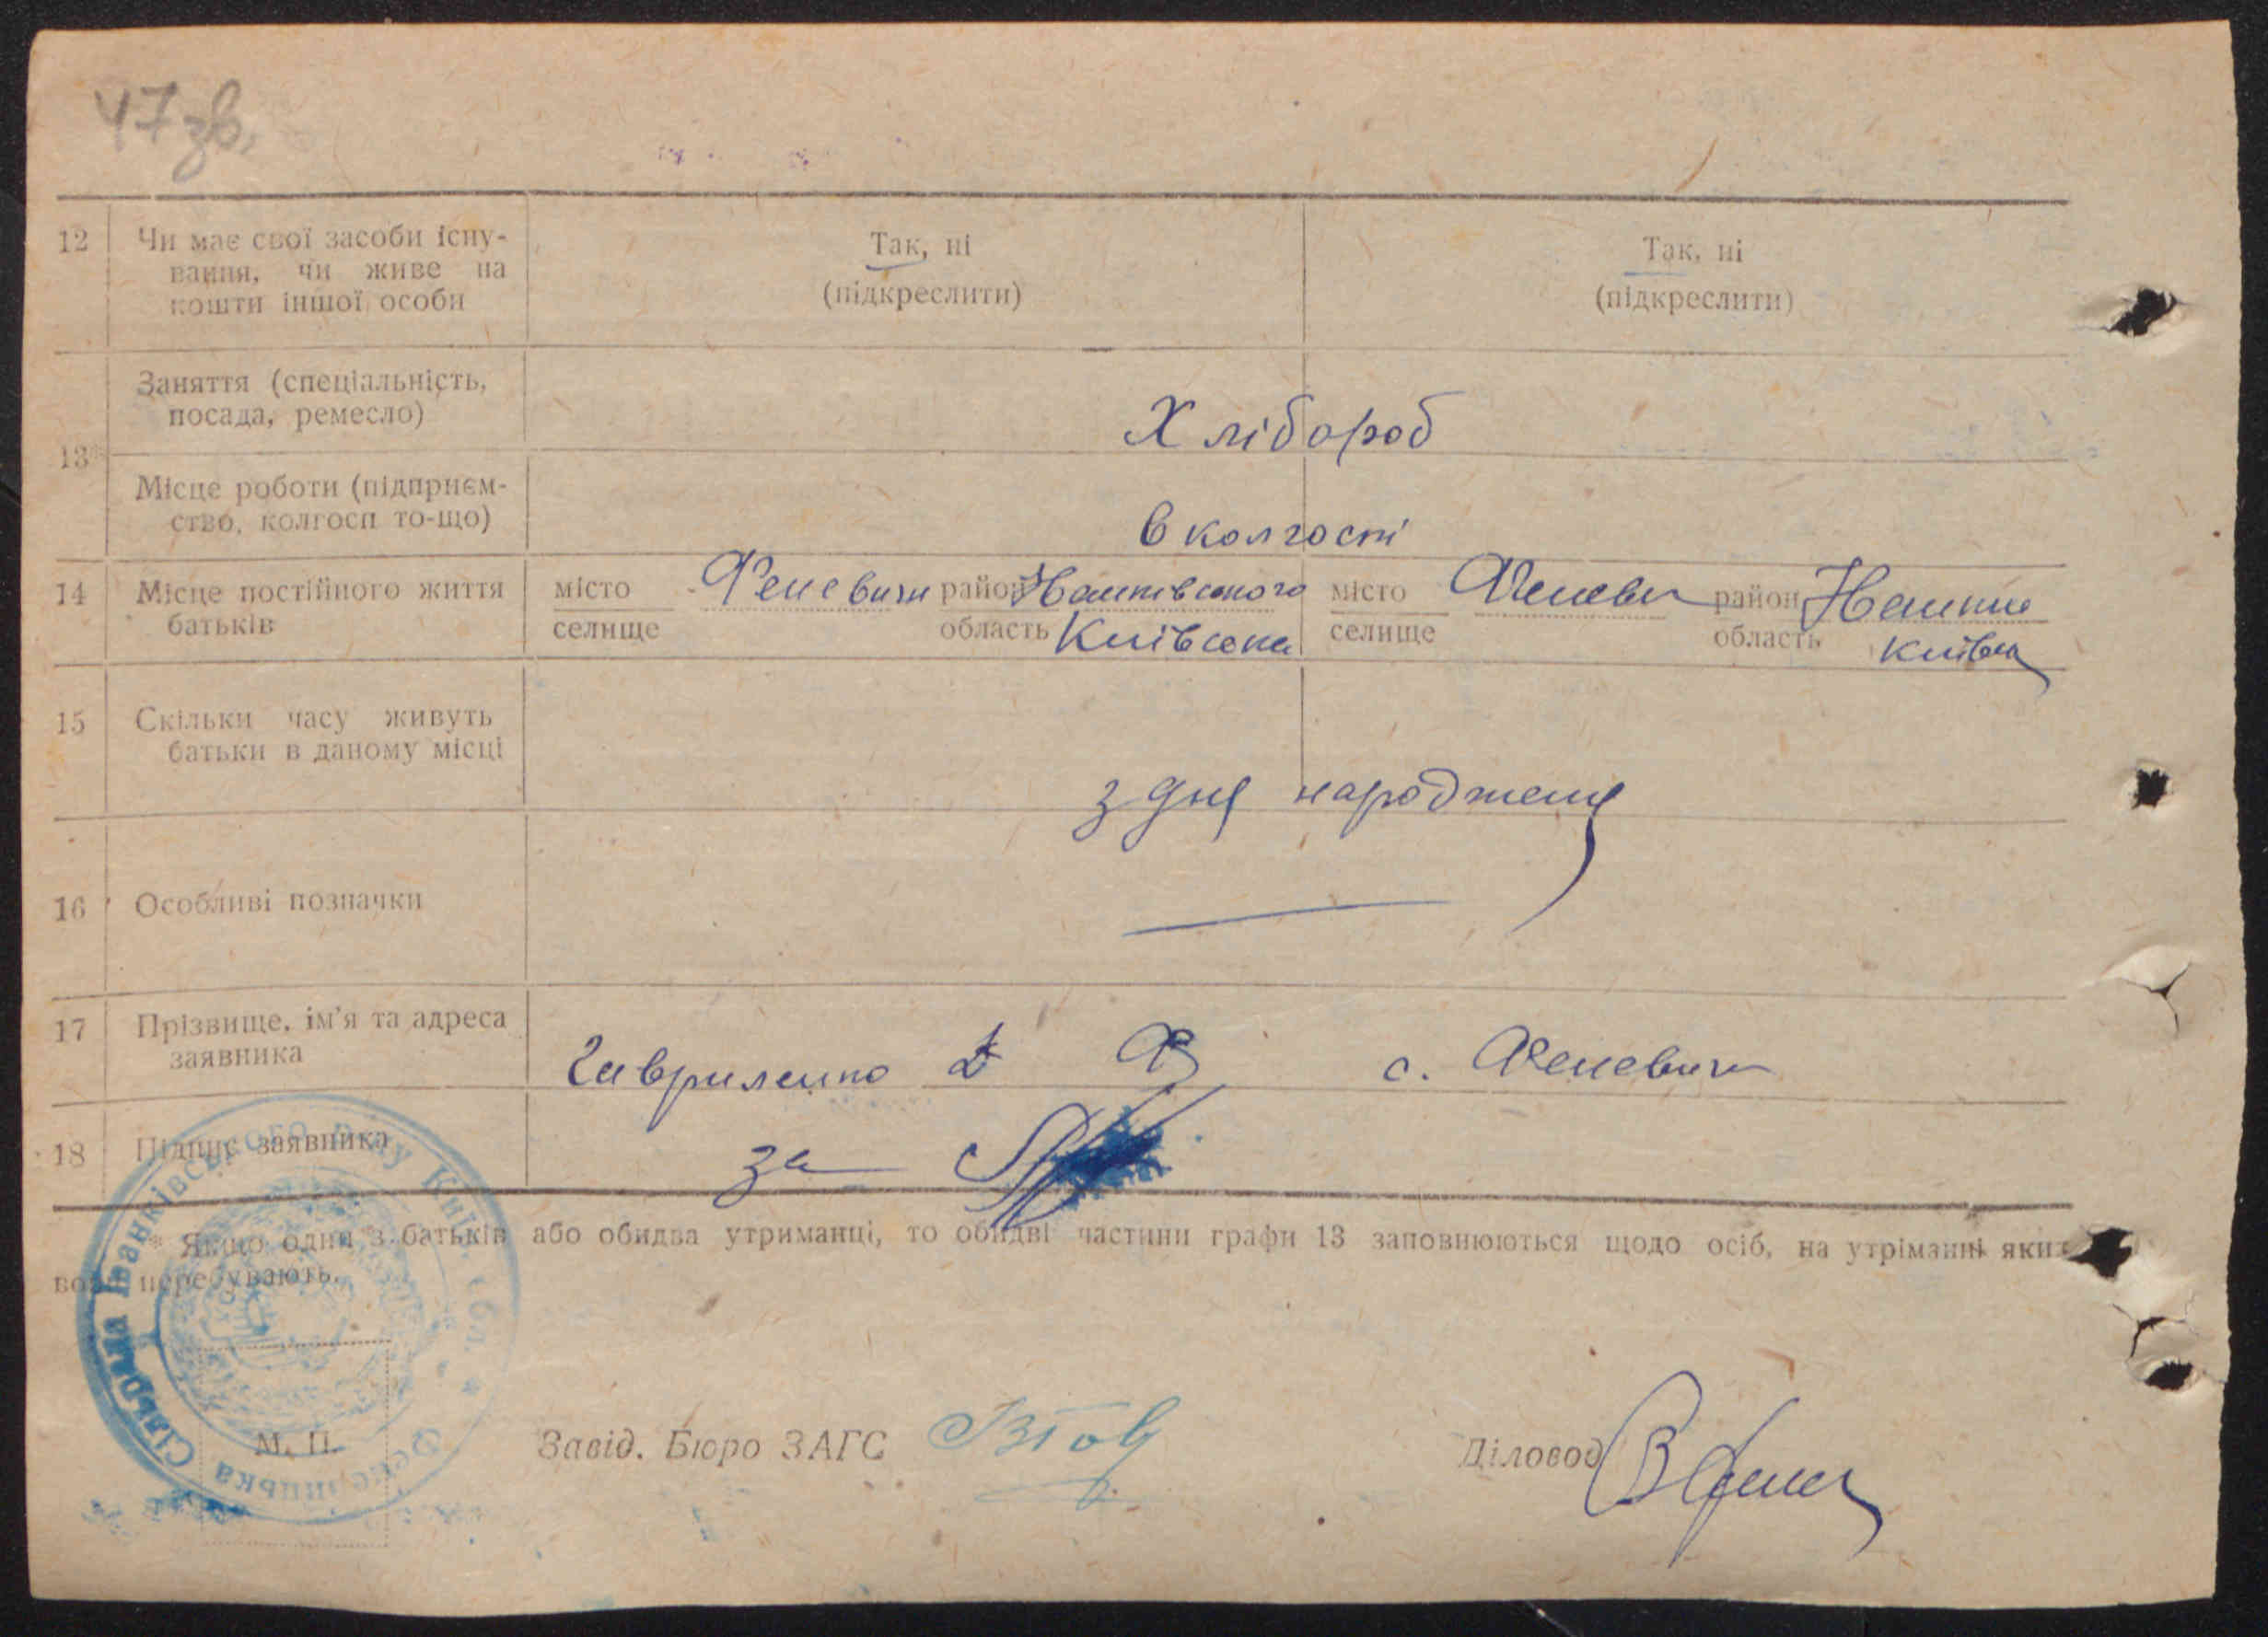 47 зв.
12 Чи має свої засоби існу-
вання, чи живе на
кошти іншої особи
Так, ні
(підкреслити)
Так, ні
(підкреслити)
13*
Заняття (спеціальність,
посада, ремесло)
Хлібороб
Місце роботи (підприєм-
ство, колгосп то-що)
В колгоспі
14 Місце постійного життя
батьків
місто Феневичи район
селище область Київська
місто Феневи район
селище область Київськ
15 Скільки часу живуть
батьки в даному місці
з дня народження
16 Особливі позначки
17 Прізвище, ім'я та адреса
заявника
Гавриленко Ф с. Феневичи
18 Підпис заявника
за
* Якщо один з батьків або обидва утриманці, то обидві частини графи 13 заповнюються щодо осіб, на утріманні яких
вони перебувають.
М. П.
Завід. Бюро ЗАГС
Діловод
Сільрада Іванківського р-ну Київ. обл.